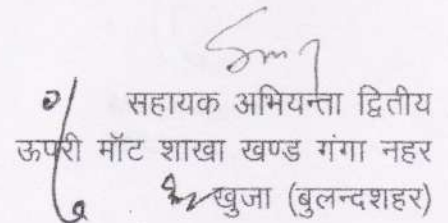 सहायक अभियन्ता द्वितीय
ऊपरी मॉट शाखा खण्ड गंगा नहर
खुजा (बुलन्दशहर)